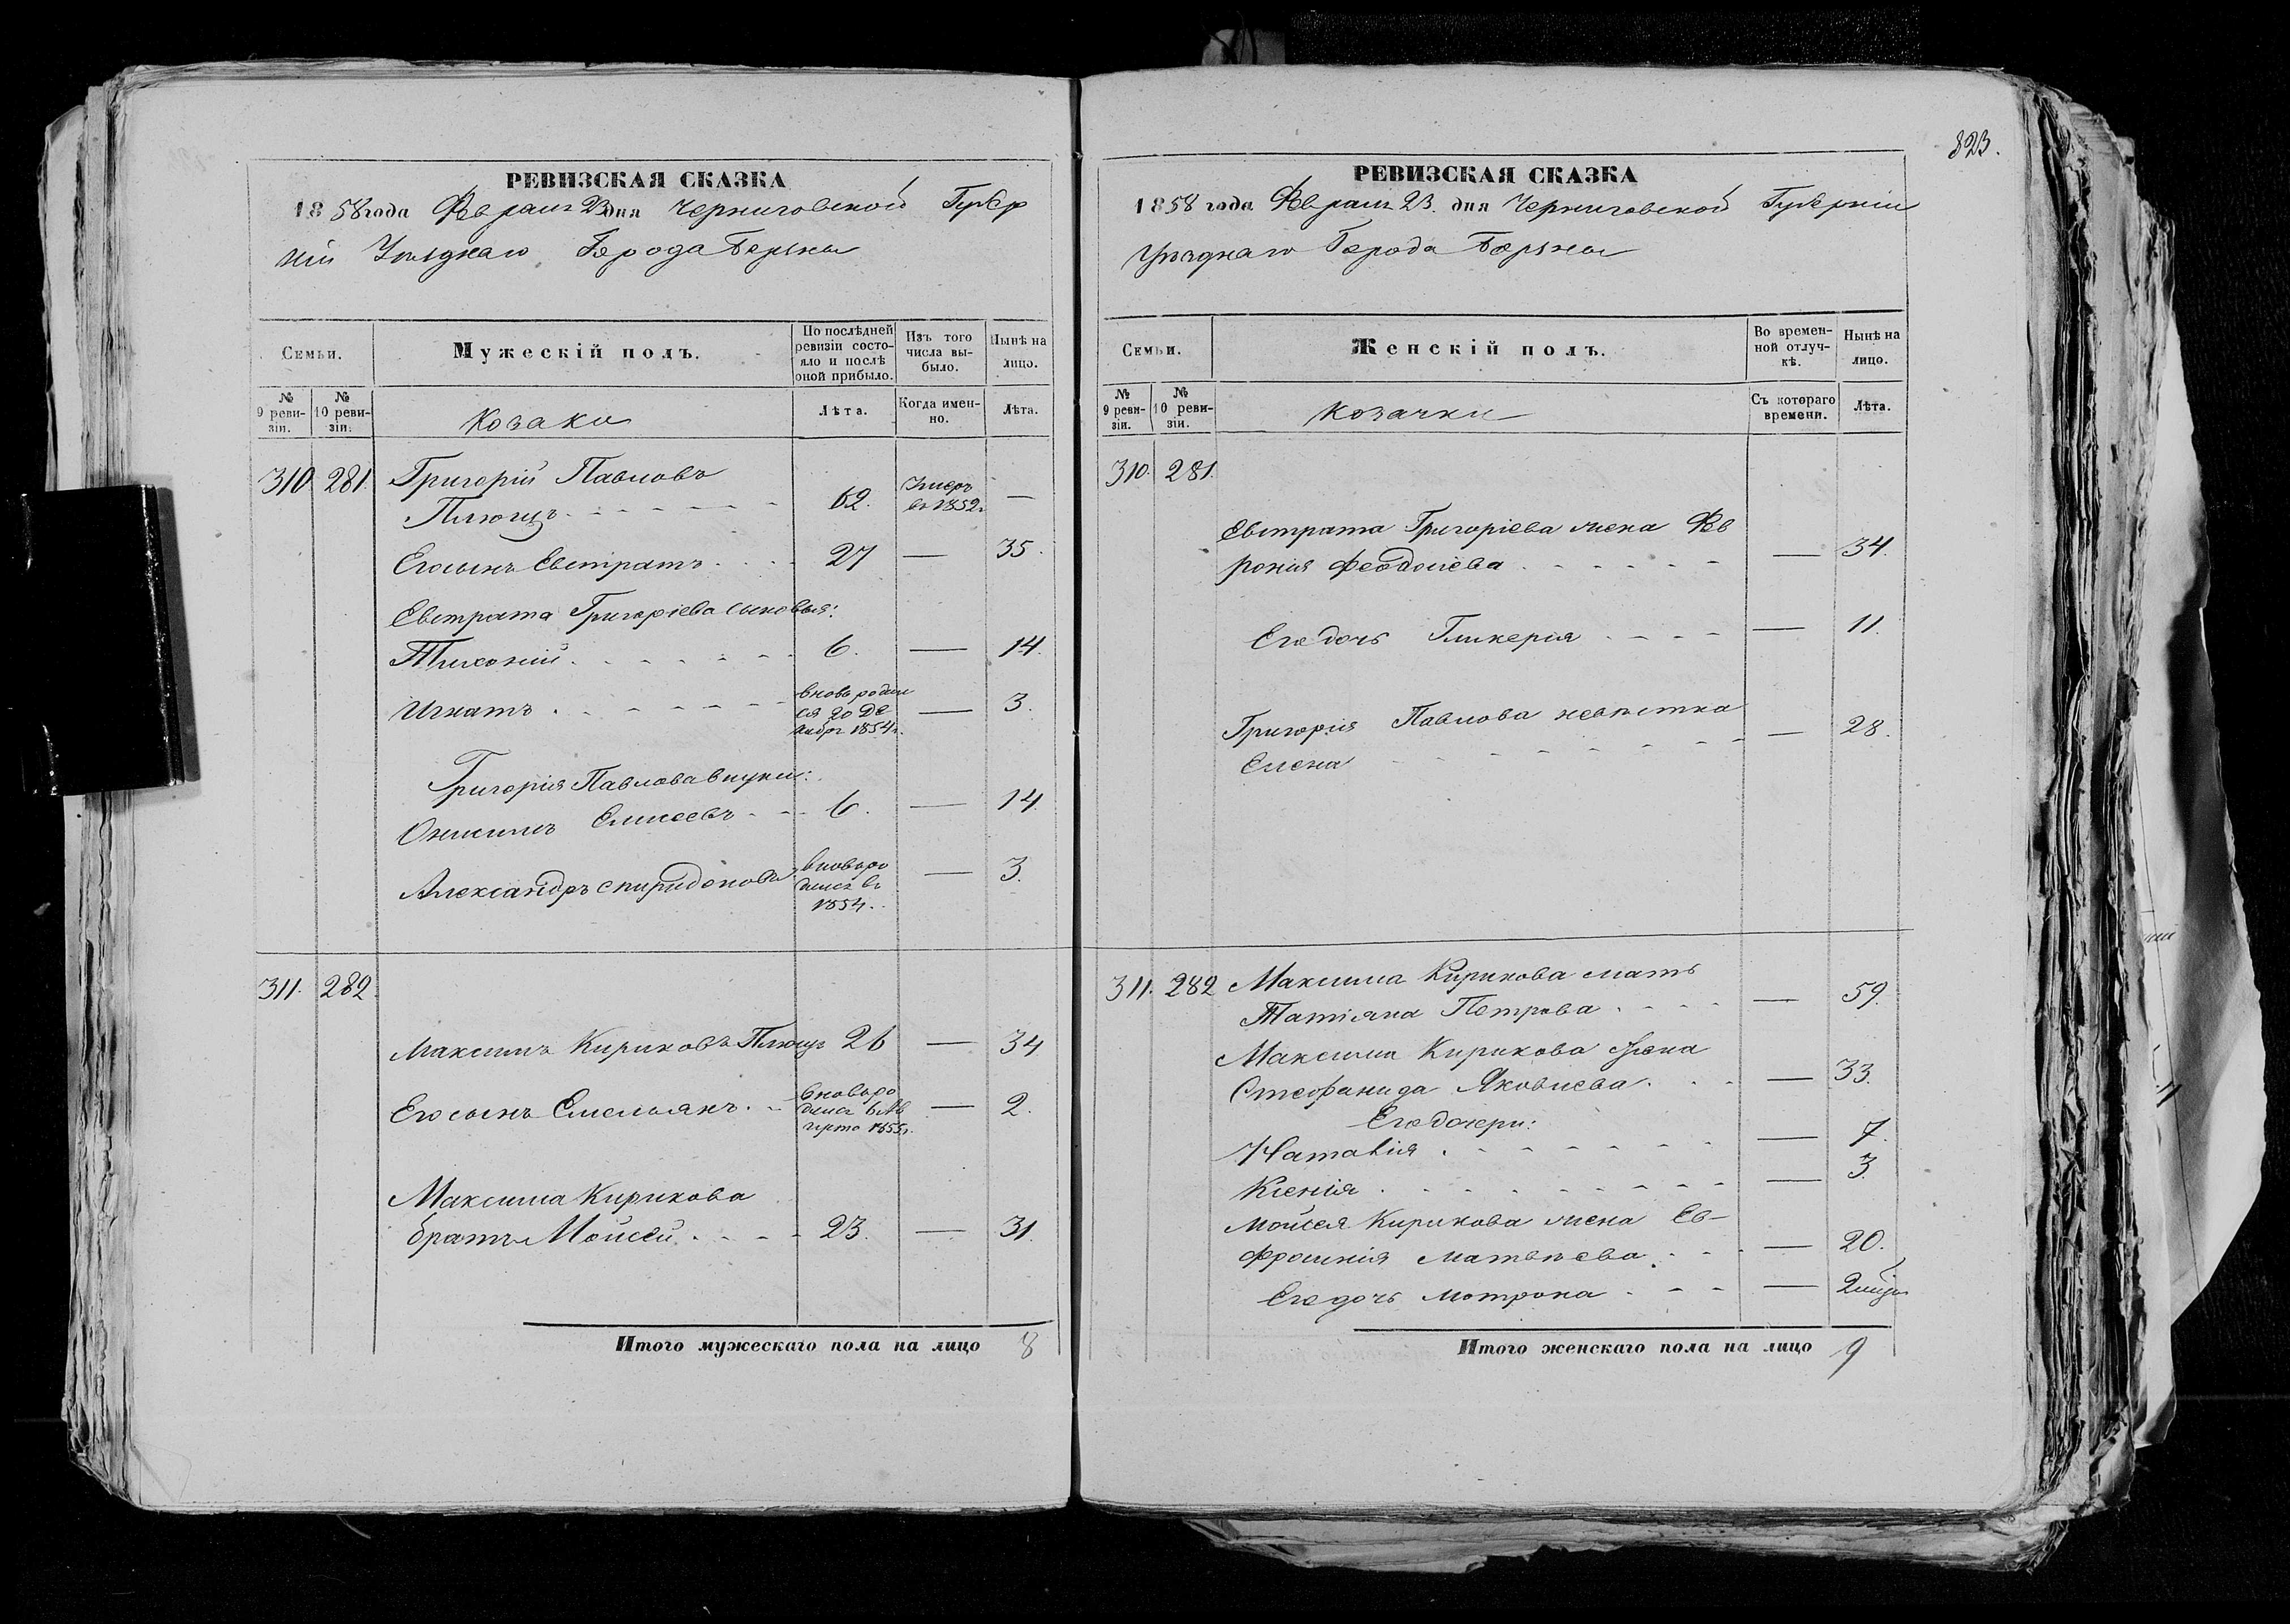 823.
РЕВИЗСКАЯ СКАЗКА
1858 года Февраля 23 дня Черниговской Губер
ніи Уѣзднаго Города Борзны
Семьи.
Мужескій полъ.
По послѣдней ревизіи состояло и послѣ оной прибыло.
Изъ того числа выбыло.
Нынѣ на лицо.
№ 9 ревизіи.
№ 10 ревизіи.
Козаки
Лѣта.
Когда именно.
Лѣта.
310 281. Григорій Павловъ
Плющъ 62. Умеръ въ 1852г. —
Его сынъ Евстратъ 27 — 35.
Евстрата Григоріева сыновья:
Тихоній 6. — 14.
Игнатъ вновь родился 20 Декабря 1854г. — 3.
Григорія Павлова внуки:
Онисимъ Елисеевъ 6. — 14.
Александръ Спиридоновъ вновь родился въ 1854. — 3.
311. 282.
Максимъ Кириковъ Плющъ 26 — 34
Его сынъ Емельянъ вновь родился 6 Августа 1855г. — 2.
Максима Кирикова
братъ Мойсей 23. — 31.
Итого мужескаго пола на лицо 8
РЕВИЗСКАЯ СКАЗКА
1858 года Февраля 23. дня Черниговской Губерніи
Уѣзднаго Города Борзны
Семьи.
Женскій полъ.
Во временной отлучкѣ.
Нынѣ на лицо.
№ 9 ревизіи.
№ 10 ревизіи.
Козачки
Съ котораго времени.
Лѣта.
310. 281.
Евстрата Григоріева жена Фев
ронія Феодосіева — 34.
Его дочь Гликерія — 11.
Григорія Павлова невѣстка
Елена — 28.
311. 282 Максима Кирикова мать
Татіяна Петрова — 59.
Максима Кирикова жена
Стефанида Яковлева — 33.
Его дочери:
Наталія — 7.
Ксенія — 3.
Мойсея Кирикова жена Ев-
фросинія Матвѣева — 20.
Его дочь Мотрона —
Итого женскаго пола на лицо 9